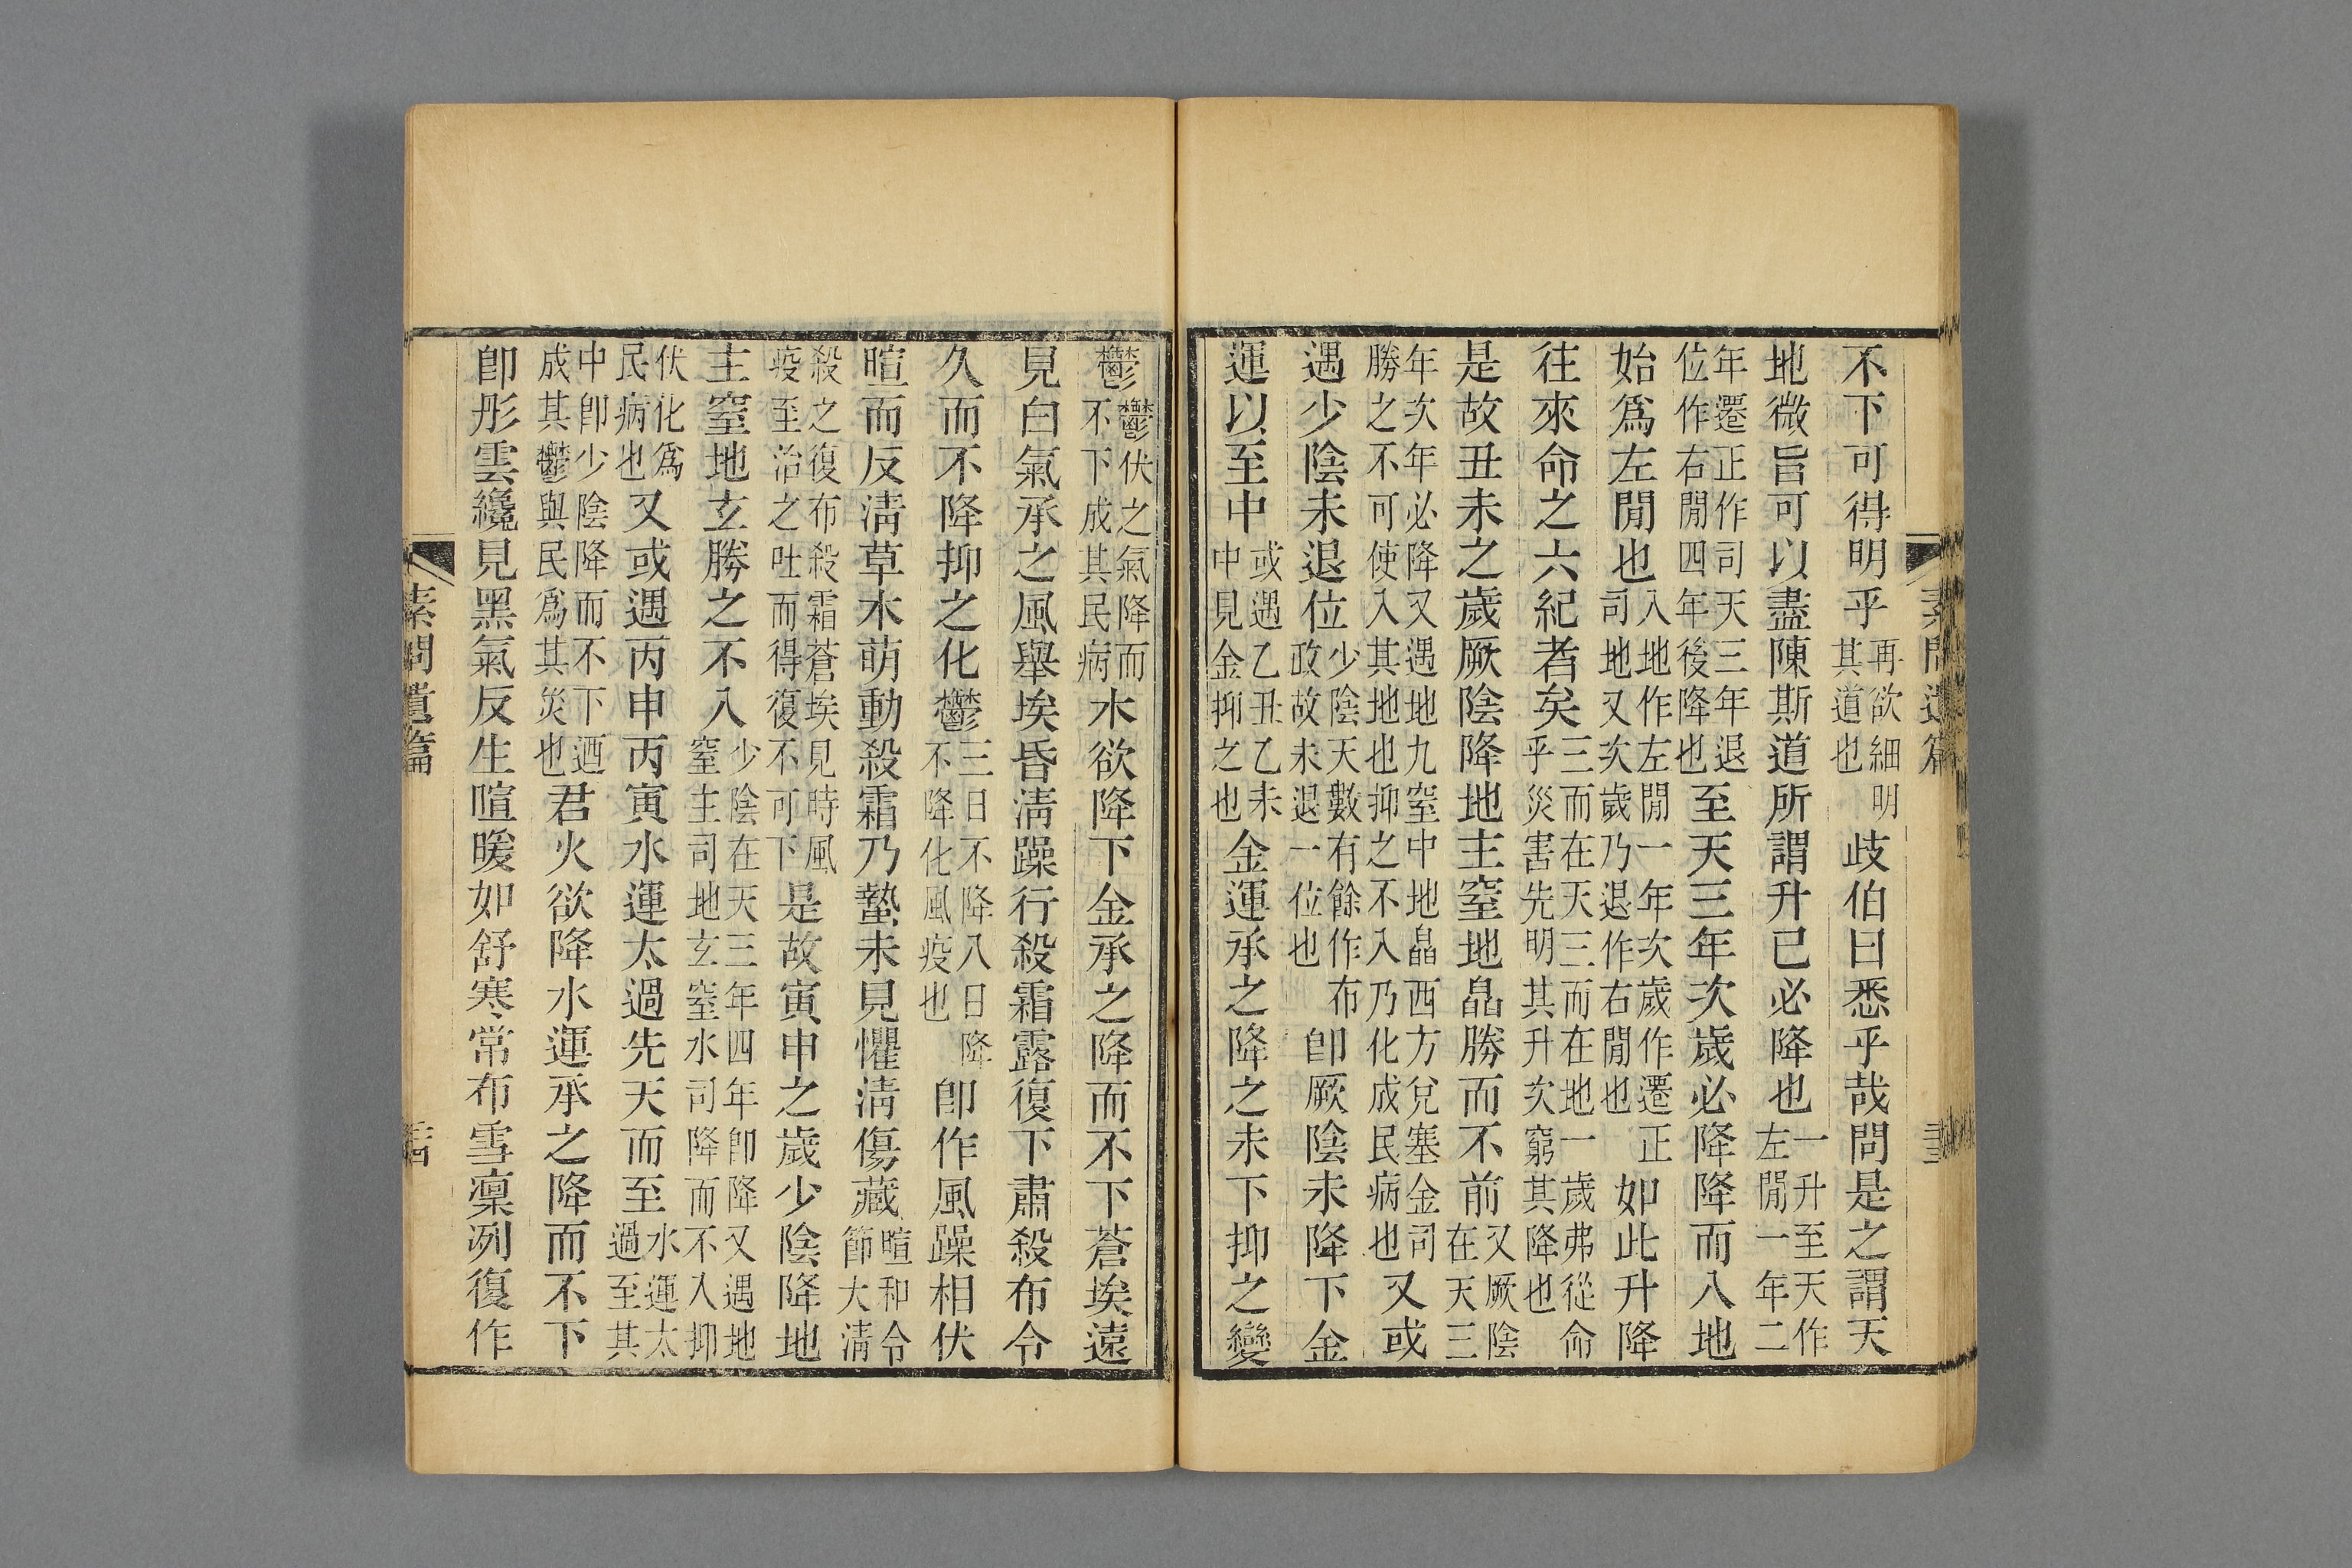 不下可得明乎再欲細明其道也歧伯曰悉乎哉問是之謂天
地微旨可以盡陳斯道所謂升已必降也一升至天作左閒一年二
年遷正作司天三年退位作右閒四年後降也至天三年次歲必降降而入地
始爲左閒也入地作左閒一年次歲作遷正司地又次歲乃退作右閒也如此升降
往來命之六紀者矣三而在天三而在地一歲弗從命乎災害先明其升次窮其降也
是故丑未之歲厥陰降地主窒地皛勝而不前又厥陰在天三
年次年必降又遇地九窒中地皛西方兌塞金司勝之不可使入其地也抑之不入乃化成民病也又或
遇少陰未退位少陰天數有餘作布政故未退一位也卽厥陰未降下金
運以至中或遇乙丑乙未中見金抑之也金運承之降之未下抑之變
鬱鬱伏之氣降而不下成其民病木欲降下金承之降而不下蒼埃遠
見白氣承之風舉埃昏清躁行殺霜露復下肅殺布令
久而不降抑之化鬱三日不降八日降不降化風疫也卽作風躁相伏
暄而反清草木萌動殺霜乃蟄未見懼清傷藏暄和令節大清
殺之復布殺霜蒼埃見時風疫至治之吐而得復不可下是故寅申之歲少陰降地
主窒地玄勝之不入少陰在天三年四年卽降又遇地窒主司地玄窒水司降而不入抑
伏化爲民病也又或遇丙申丙寅水運太過先天而至水運太過至其
中卽少陰降而不下迺成其鬱與民爲其災也君火欲降水運承之降而不下
卽彤雲纔見黑氣反生暄暖如舒寒常布雪凜冽復作
素問遺篇